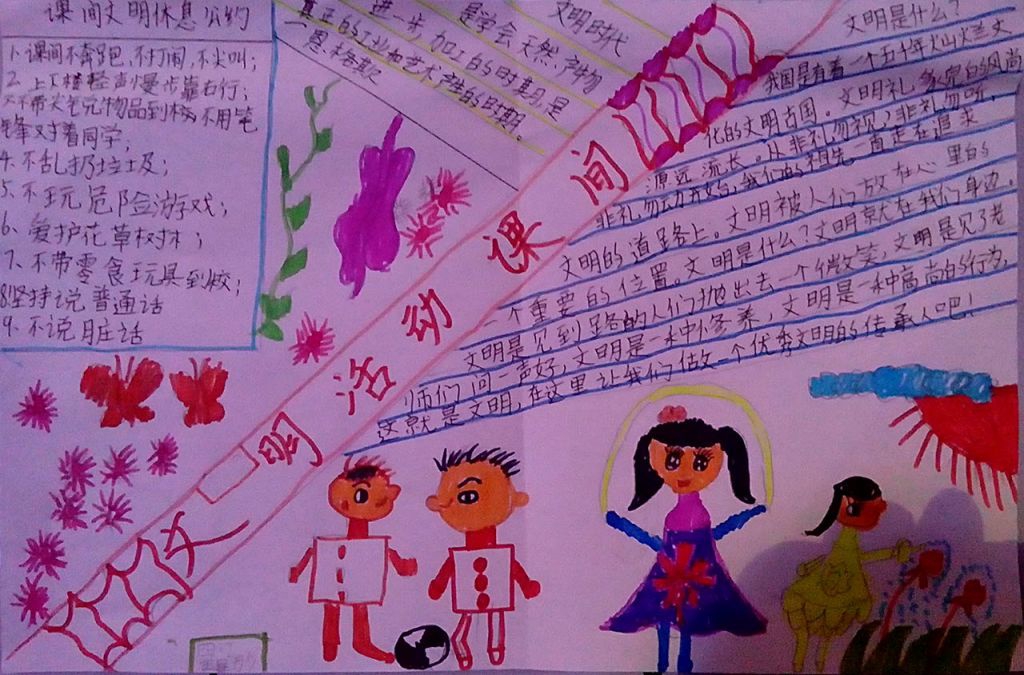 课间文明休息公约
1.课间不奔跑,不打闹,不尖叫;
2.上下楼轻声慢步靠右行;
不用笔
锋对着同学;
4.不乱扔垃圾;
5.不玩危险游戏;
6、爱护花草树木;
7.不带零食玩具到校;
8.坚持说普通话
9.不说脏话
文明时代
是学会天然产物
进一步加工的时期,是
真正的工业和艺术产生的时期。
文明课间活动
文明是什么?
我国是有着一个五千年灿烂文
化的文明古国。文明礼
源远流长。从非礼勿视,非礼勿听,
非礼勿动开始,我们的祖先一直走在追求
文明的道路上。文明被人们放在心里的
一个重要的位置。文明是什么?文明就在我们身边。
文明是见到路的人们抛出去一个微笑,文明是见了老
师们问一声好,文明是一种修养,文明是一种高尚的行为,
这就是文明,在这里让我们做一个优秀文明的传承人吧!